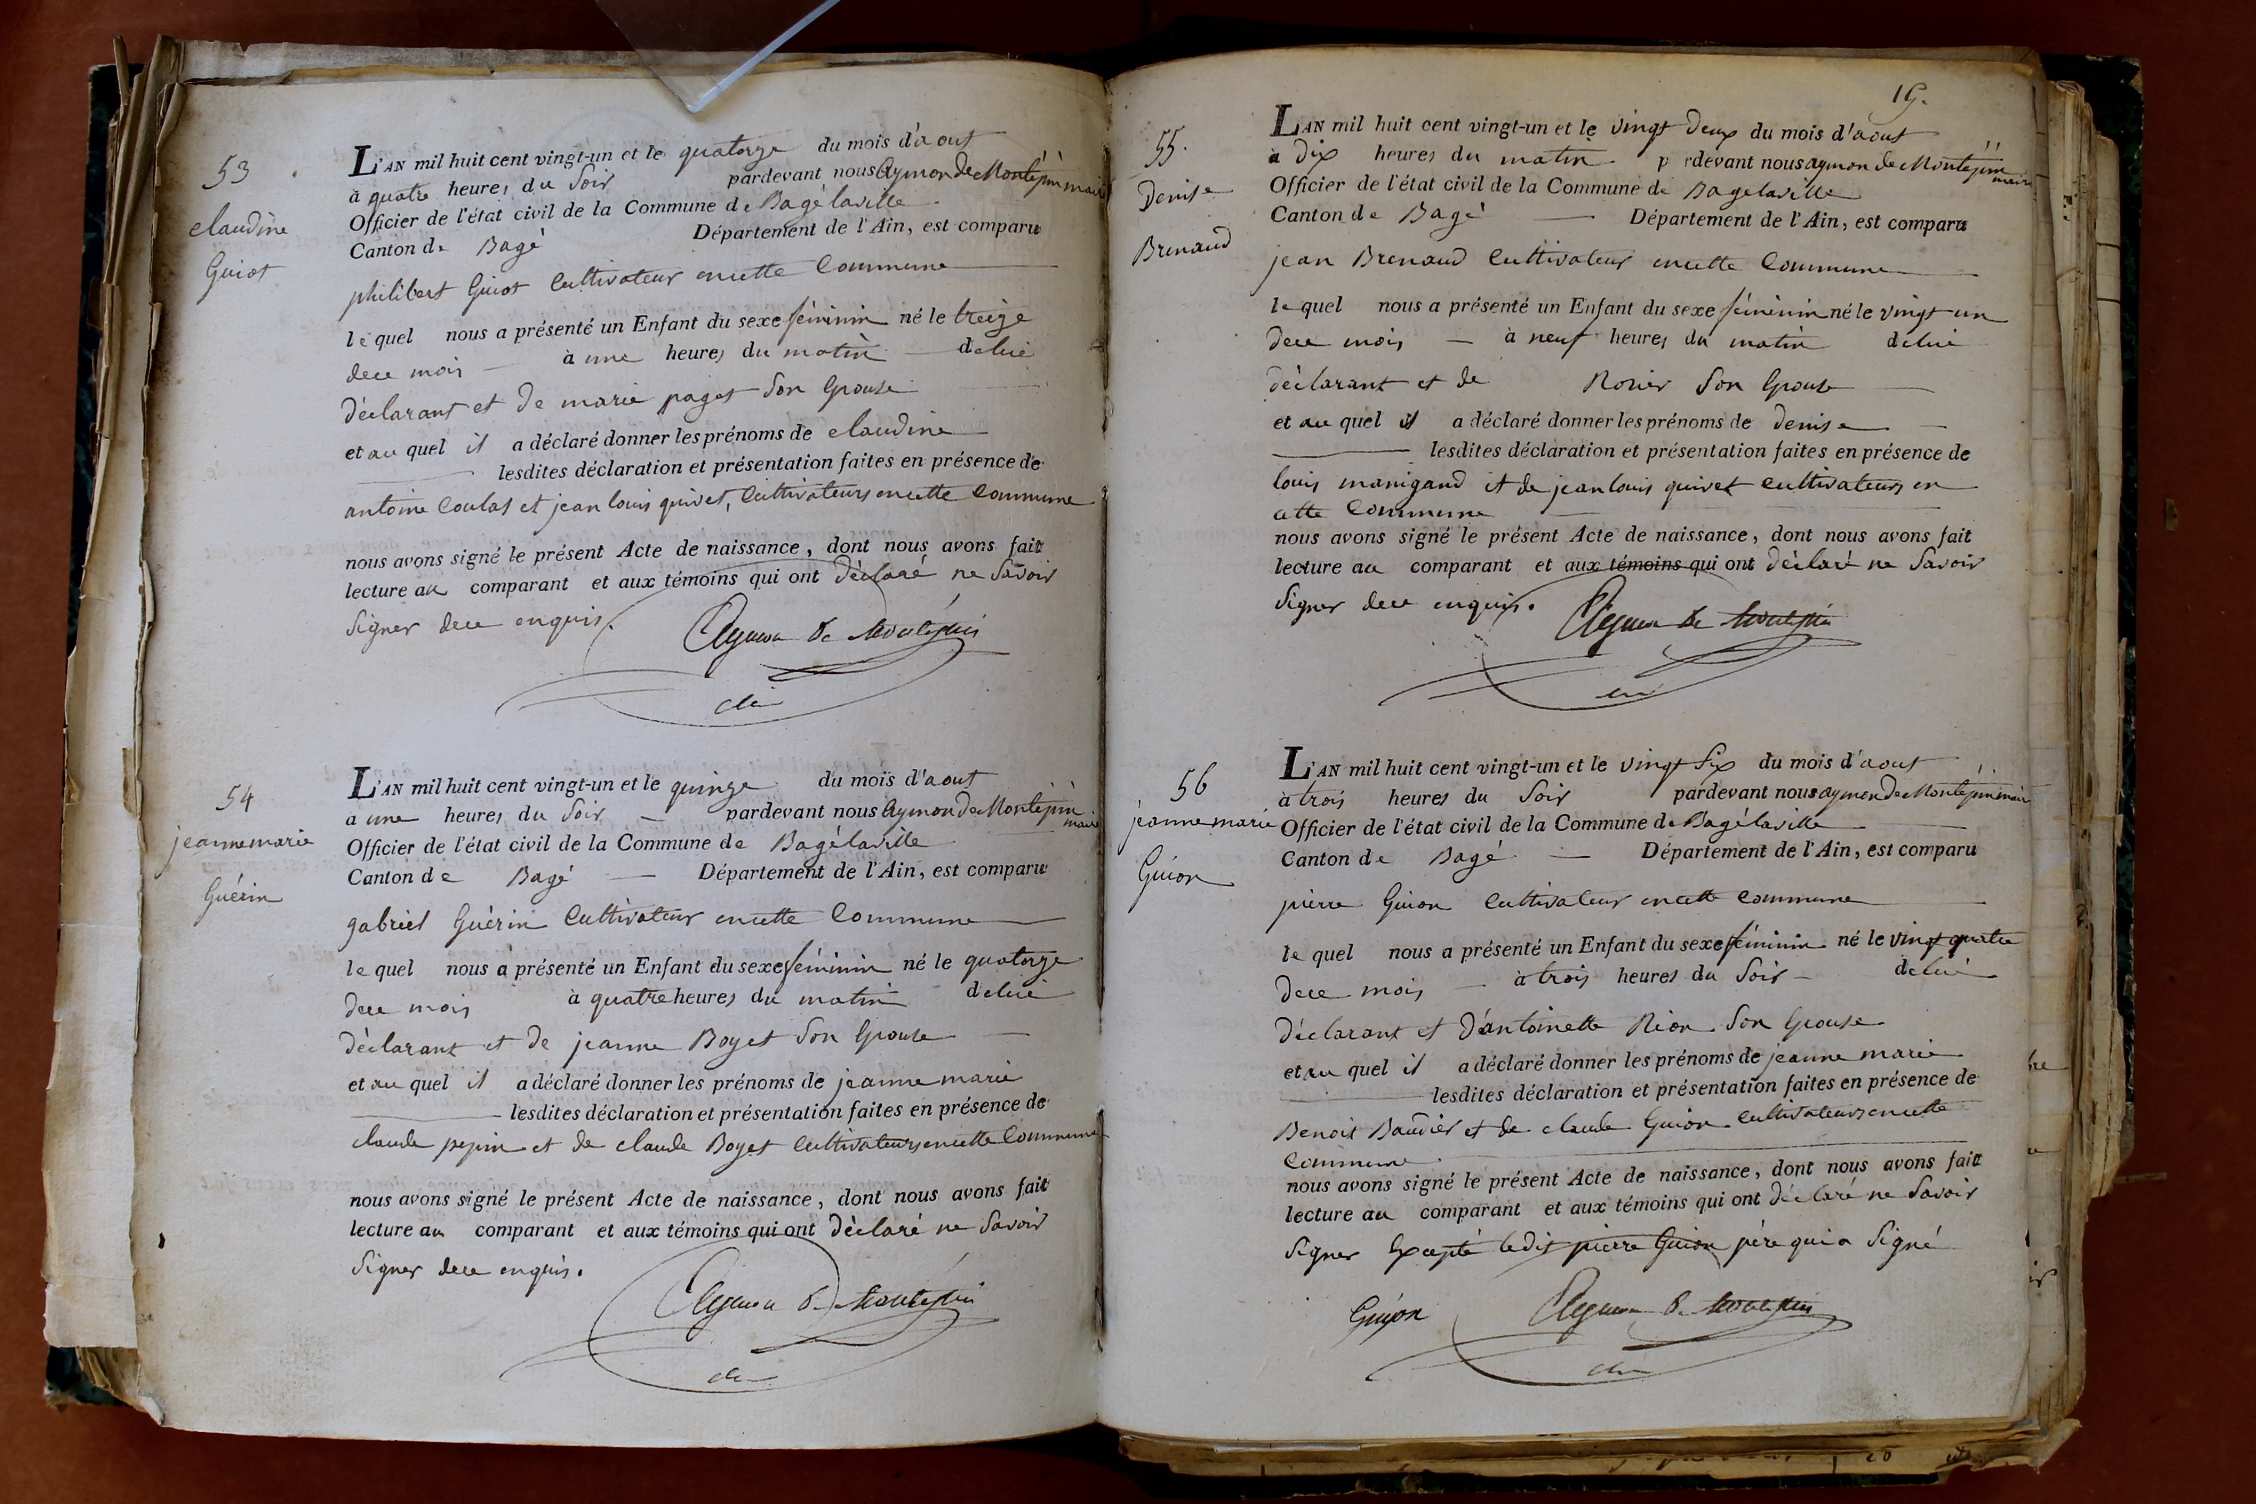 53
claudine
Guiot
L'AN mil huit cent vingt-un et le quatorze du mois d'aout
à quatre heures du soir pardevant nous Aymon de Montépin maire
Officier de l'état civil de la Commune de Bagé laville
Canton de Bagé Département de l'Ain, est comparu
philibert Guiot Cultivateur en cette Commune
le quel nous a présenté un Enfant du sexe féminin né le treize
de ce mois à une heures du matin de lui
déclarant et de marie paget son Epouse
et au quel il a déclaré donner les prénoms de claudine
lesdites déclaration et présentation faites en présence de
antoine Coulas et jean louis quivet, Cultivateurs en cette Commune
nous avons signé le présent Acte de naissance, dont nous avons fait
lecture au comparant et aux témoins qui ont déclaré ne savoir
signer de ce enquis.
Aymon de Montépin
54
jeanne marie
Guérin
L'AN mil huit cent vingt-un et le quinze du mois d'aout
a une heures du soir pardevant nous Aymon de Montépin maire
Officier de l'état civil de la Commune de Bagé laville
Canton de Bagé Département de l'Ain, est comparu
gabriel Guérin Cultivateur en cette Commune
le quel nous a présenté un Enfant du sexe féminin né le quatorze
de ce mois à quatre heures du matin de lui
déclarant et de jeanne Boyet son Epouse
et au quel il a déclaré donner les prénoms de jeanne marie
lesdites déclaration et présentation faites en présence de
claude pepin et de claude Boyet Cultivateurs en cette Commune
nous avons signé le présent Acte de naissance, dont nous avons fait
lecture au comparant et aux témoins qui ont déclaré ne savoir
signer de ce enquis.
Aymon de Montépin
19.
55.
Denise
Brenaud
L'AN mil huit cent vingt-un et le vingt deux du mois d'aout
à dix heures du matin p rdevant nous aymon de Montépin maire
Officier de l'état civil de la Commune de Bagé laville
Canton de Bagé Département de l'Ain, est comparu
jean Brenaud Cultivateur en cette Commune
le quel nous a présenté un Enfant du sexe féminin né le vingt un
de ce mois à neuf heures du matin de lui
déclarant et de Rosier son Epouse
et au quel il a déclaré donner les prénoms de denise
lesdites déclaration et présentation faites en présence de
louis manigand et de jean louis quivet cultivateurs en
cette Commune
nous avons signé le présent Acte de naissance, dont nous avons fait
lecture au comparant et aux témoins qui ont déclaré ne savoir
signer de ce enquis.
Aymon de Montépin
56
jeanne marie
Guion
L'AN mil huit cent vingt-un et le vingt six du mois d'aout
à trois heures du soir pardevant nous aymon de Montépin maire
Officier de l'état civil de la Commune de Bagé laville
Canton de Bagé Département de l'Ain, est comparu
pierre Guion Cultivateur en cette commune
le quel nous a présenté un Enfant du sexe féminin né le vingt quatre
de ce mois à trois heures du soir de lui
déclarant et d'antoinette Rion son Epouse
et au quel il a déclaré donner les prénoms de jeanne marie
lesdites déclaration et présentation faites en présence de
Benoit Baudier et de claude Guion cultivateurs en cette
Commune
nous avons signé le présent Acte de naissance, dont nous avons fait
lecture au comparant et aux témoins qui ont déclaré ne savoir
signer Excepté ledit pierre Guion père qui a signé
Guyon Aymon de Montépin